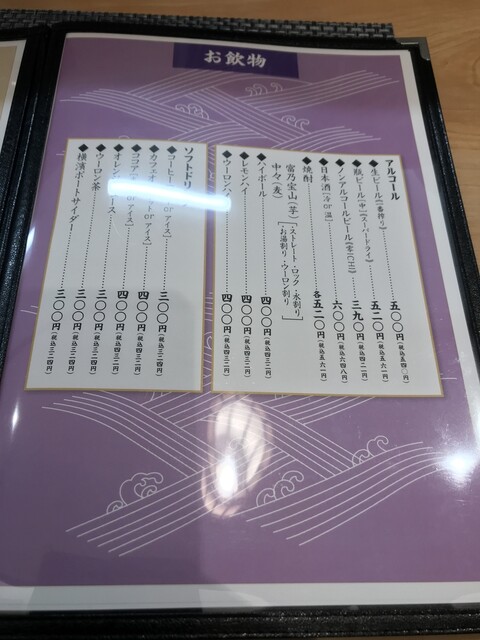 お飲物
アルコール
◆生ビール《一番搾り》 五〇〇円(税込五四〇円)
◆瓶ビール【中】《スーパードライ》 五二〇円(税込五六一円)
◆ノンアルコールビール《零ICHI》 三九〇円(税込四二一円)
◆日本酒[冷or温] 六〇〇円(税込六四八円)
◆焼酎 各五二〇円(税込五六一円)
富乃宝山(芋) [・ストレート・ロック・水割り
中々(麦) ・お湯割り・ウーロン割り]
◆ハイボール 四〇〇円(税込四三二円)
◆レモンハイ 四〇〇円(税込四三二円)
◆ウーロンハイ 四〇〇円(税込四三二円)
ソフトドリ
◆コーヒー or アイス] 三〇〇円(税込三二四円)
◆カフェオ ット or アイス] 四〇〇円(税込四三二円)
◆ココア or アイス] 四〇〇円(税込四三二円)
◆オレン ース 三〇〇円(税込三二四円)
◆ウーロン茶 三〇〇円(税込三二四円)
◆横濱ポートサイダー 三〇〇円(税込三二四円)